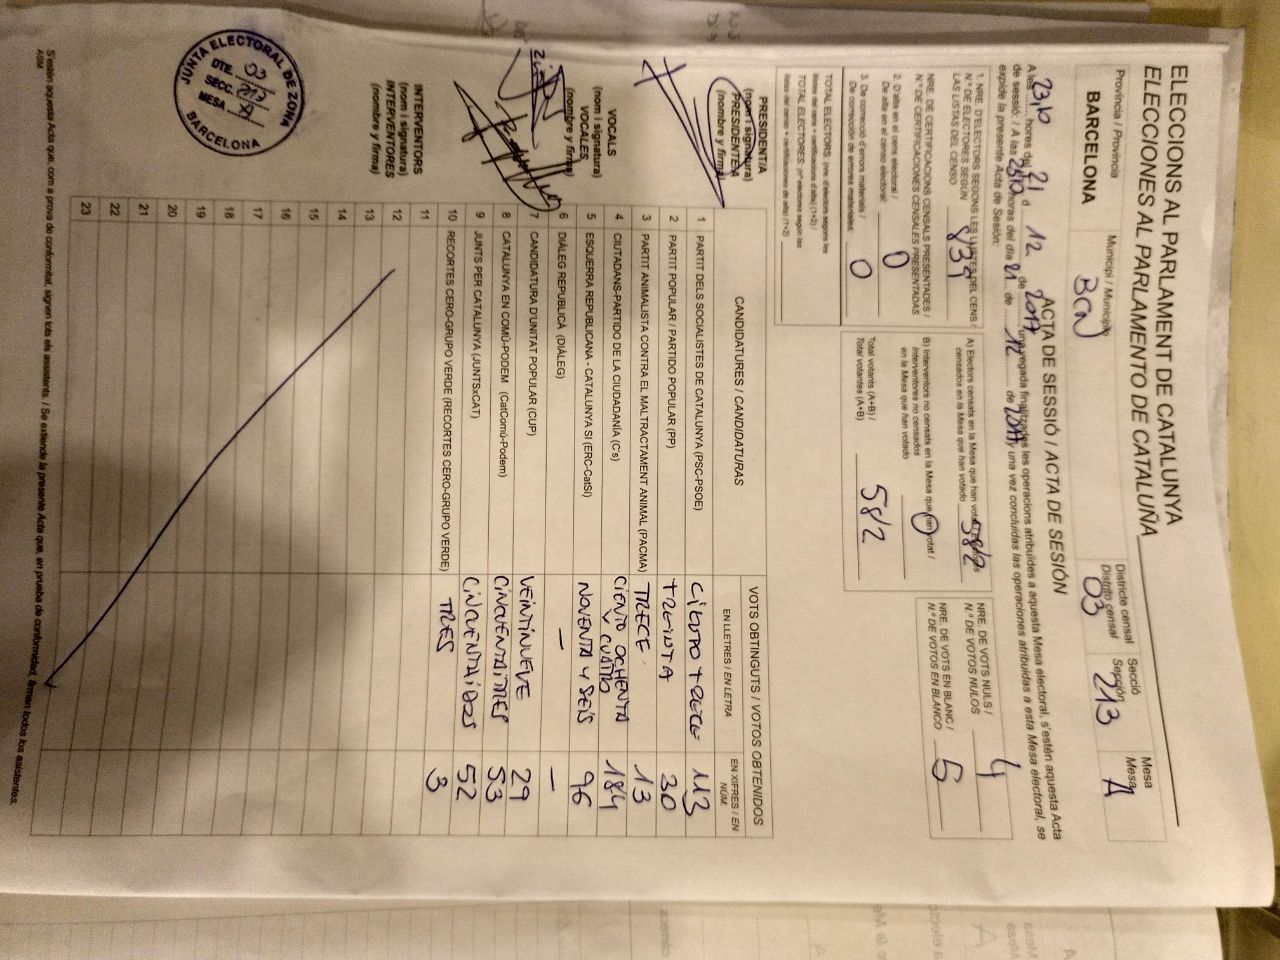 ELECCIONS AL PARLAMENT DE CATALUNYA
ELECCIONES AL PARLAMENTO DE CATALUÑA
Província / Provincia
BARCELONA
Municipi / Municipio
BCN
Districte censal
Distrito censal
03
Secció
Sección
213
Mesa
Mesa
A
ACTA DE SESSIÓ / ACTA DE SESIÓN
A les 23,10 hores del 21 d 12 de 2017, una vegada finalitzades les operacions atribuïdes a aquesta Mesa electoral, s'estén aquesta Acta
de sessió. / A las 23,10 horas del día 21 de 12 de 2017, y una vez concluidas las operaciones atribuidas a esta Mesa electoral, se
expide la presente Acta de Sesión:
1. NRE. D'ELECTORS SEGONS LES LLISTES DEL CENS /
N.º DE ELECTORES SEGÚN
LAS LISTAS DEL CENSO
839
NRE. DE CERTIFICACIONS CENSALS PRESENTADES /
N.º DE CERTIFICACIONES CENSALES PRESENTADAS
2. D'alta en el cens electoral /
De alta en el censo electoral:
0
3. De correcció d'errors materials /
De corrección de errores materiales:
0
TOTAL ELECTORS: (nre. d'electors segons les
llistes del cens + certificacions d'alta) (1+2) /
TOTAL ELECTORES: (nº electores según las
listas del censo + certificaciones de alta) (1+2)
A) Electors censats en la Mesa que han votat /
censados en la Mesa que han votado
582
B) Interventors no censats en la Mesa que han votat /
Interventores no censados
en la Mesa que han votado
0
Total votants (A+B) /
Total votantes (A+B)
582
NRE. DE VOTS NULS /
N.º DE VOTOS NULOS
4
NRE. DE VOTS EN BLANC /
N.º DE VOTOS EN BLANCO
5
CANDIDATURES / CANDIDATURAS
VOTS OBTINGUTS / VOTOS OBTENIDOS
EN LLETRES / EN LETRA
EN XIFRES / EN NÚM.
1 PARTIT DELS SOCIALISTES DE CATALUNYA (PSC-PSOE) CIENTO TRECE 113
2 PARTIT POPULAR / PARTIDO POPULAR (PP) TREINTA 30
3 PARTIT ANIMALISTA CONTRA EL MALTRACTAMENT ANIMAL (PACMA) TRECE 13
4 CIUTADANS-PARTIDO DE LA CIUDADANÍA (C's) CIENTO OCHENTA Y CUATRO 184
5 ESQUERRA REPUBLICANA - CATALUNYA SÍ (ERC-CatSí) NOVENTA Y SEIS 96
6 DIÀLEG REPUBLICÀ (DIÀLEG) — —
7 CANDIDATURA D'UNITAT POPULAR (CUP) VEINTINUEVE 29
8 CATALUNYA EN COMÚ-PODEM (CatComú-Podem) CINCUENTAITRES 53
9 JUNTS PER CATALUNYA (JUNTSxCAT) CINCUENTAIDOS 52
10 RECORTES CERO-GRUPO VERDE (RECORTES CERO-GRUPO VERDE) TRES 3
11
12
13
14
15
16
17
18
19
20
21
22
23
PRESIDENT/A
(nom i signatura)
PRESIDENTE/A
(nombre y firma)
VOCALS
(nom i signatura)
VOCALES
(nombre y firma)
INTERVENTORS
(nom i signatura)
INTERVENTORES
(nombre y firma)
JUNTA ELECTORAL DE ZONA
DTE. 03
SECC. 213
MESA A
BARCELONA
S'estén aquesta Acta que, com a prova de conformitat, signen tots els assistents. / Se extiende la presente Acta que, en prueba de conformidad, firman todos los asistentes.